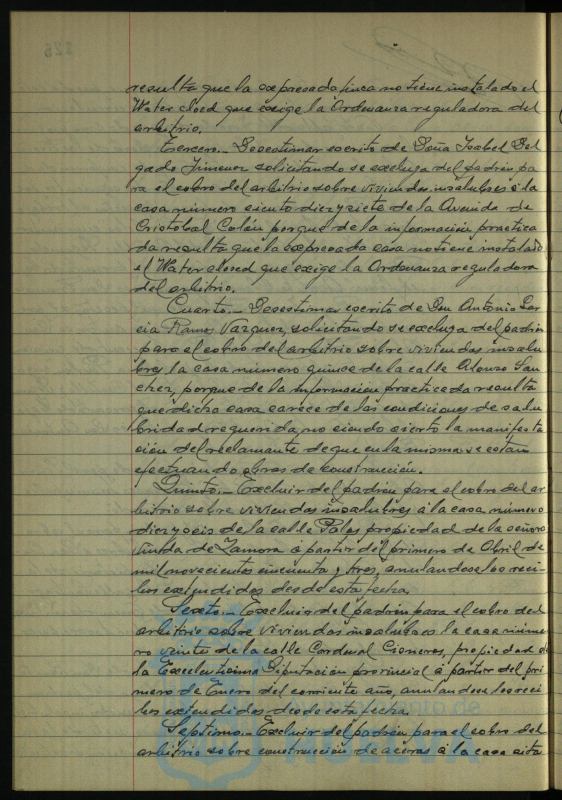 resulta que la expresada finca no tiene instalado el
Water closed que exige la Ordenanza reguladora del
arbitrio.
Tercero.- Desestimar escrito de Doña Isabel Del
gado Jimenez solicitando se excluya del padrón pa
ra el cobro del arbitrio sobre viviendas insalubres á la
casa número ciento diez y siete de la Avenida de
Cristobal Colón porque de la información practica
da resulta que la expresada casa no tiene instalado
el Water closed que exige la Ordenanza reguladora
del arbitrio.
Cuarto.- Desestimar escrito de Don Antonio Gar
cia Ramos Vázquez, solicitando se excluya del padrón
para el cobro del arbitrio sobre viviendas insalu
bres la casa número quince de la calle Alonso San
chez, porque de la información practicada resulta
que dicha casa carece de las condiciones de salu
bridad requerida, no siendo cierto la manifesta
ción del reclamante de que en la misma se estan
efectuando obras de construcción.
Quinto.- Excluir del padrón para el cobro del ar
bitrio sobre viviendas insalubres á la casa número
diez y seis de la calle Palos propiedad de la señora
Viuda de Zamora á partir del primero de Abril de
mil novecientos cincuenta y tres, anulandose los reci
bos extendidos desde esta fecha.
Sexto.- Excluir del padrón para el cobro del
arbitrio sobre viviendas insalubres la casa núme
ro veinte de la calle Cardenal Cisneros, propiedad de
la Excelentisima Diputación provincial á partir del pri
mero de Enero del corriente año, anulandose los reci
bos extendidos desde esta fecha.
Septimo.- Excluir del padrón para el cobro del
arbitrio sobre construcción de aceras á la casa sita